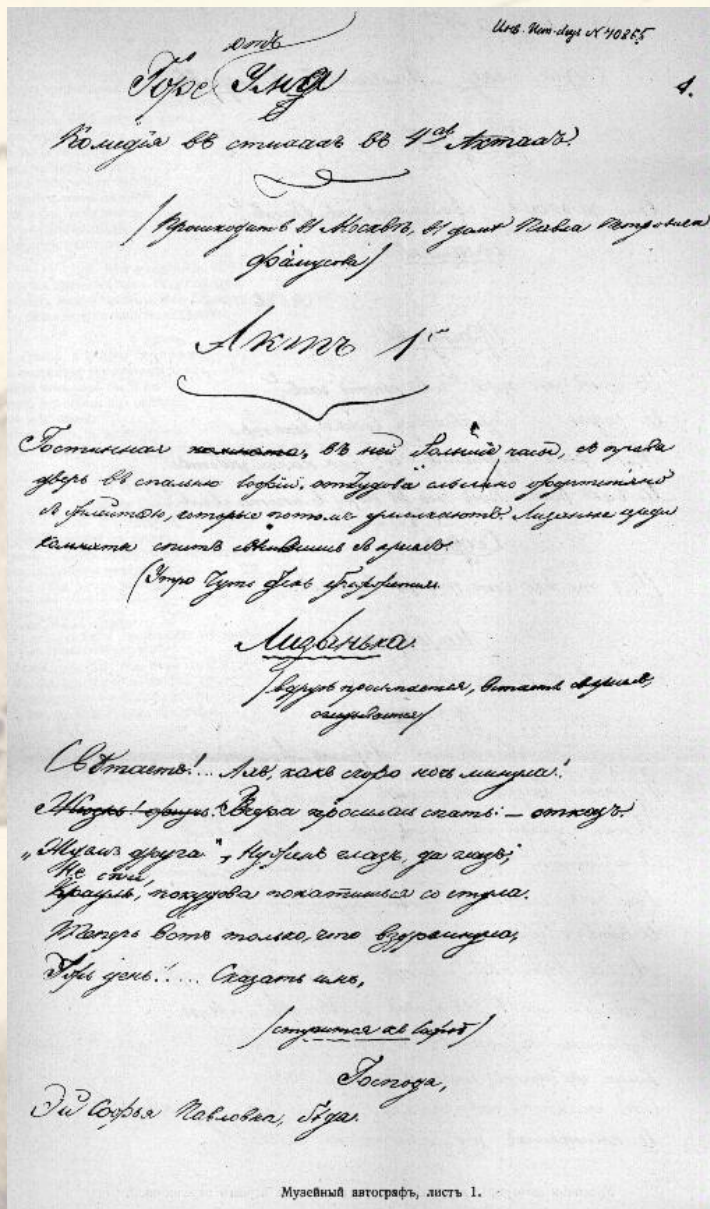 № 40865
1.
отъ
Горе Ума
Комедія въ стихахъ въ 4хъ Актахъ.
/Происходитъ въ Москвѣ, въ домѣ Павла Петровича
Фамусова/
Актъ 1й
Гостинная комната, въ ней большіе часы, съ права
дверь въ спальню Софіи, откудова слышно фортепіяно
съ флейтою, которые потомъ умолкаютъ. Лизанька среди
комнаты спитъ свѣсившись съ креселъ.
(Утро чуть день брежжится
Лизанька.
/вдругъ просыпается, встаетъ съ креселъ,
оглядывается/
Свѣтаетъ!... Ахъ, какъ скоро ночь минула!
Вчера просилась спать: — отказъ.
„Ждемъ друга", Нуженъ глазъ, да глазъ;
Не спи,
покудова покатишься со стула.
Теперь вотъ только, что вздремнула,
Ужъ день!.... Сказать имъ,
/стучится къ Софьѣ/
Господа,
Эй Софья Павловна, бѣда.
Музейный автографъ, листъ 1.